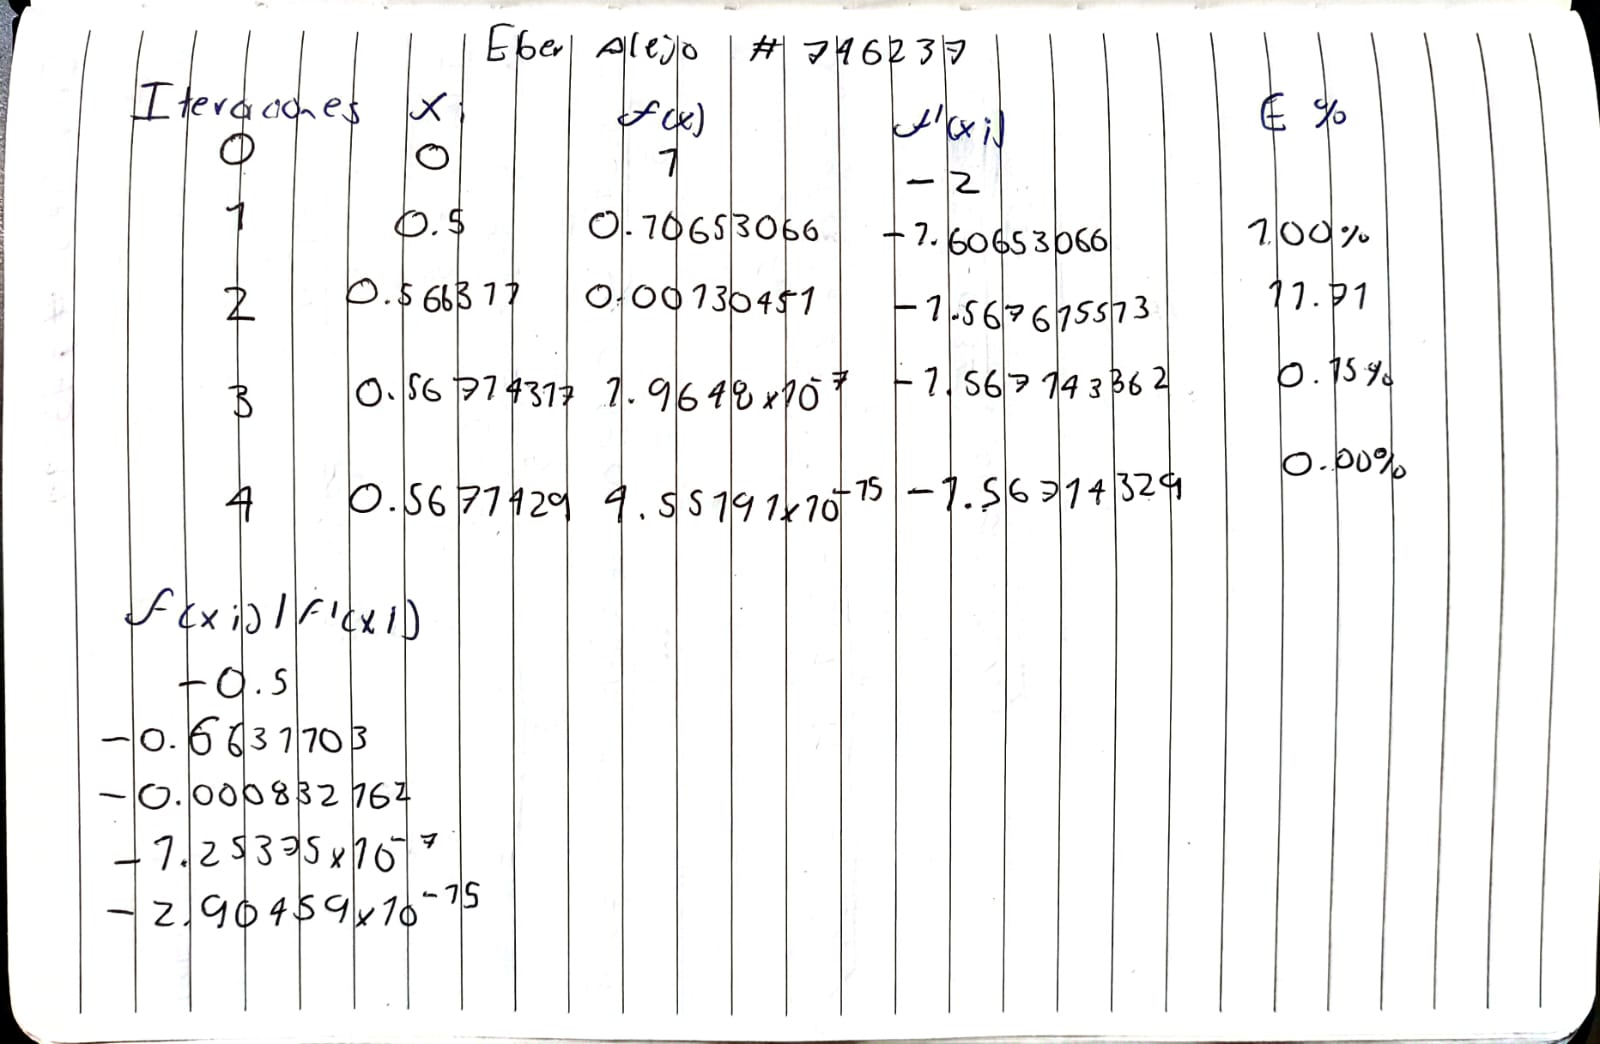 Eber Alejo # 746237
Iteraciones Xi f(x) f'(xi) E %
0 0 1 -2
1 0.5 0.10653066 -1.60653066 100%
2 0.566311 0.00130451 -1.567615513 11.71
3 0.56714317 1.9648x10⁻⁷ -1.567143362 0.15%
4 0.5671429 4.55191x10⁻¹⁵ -1.56714329 0.00%
f(xi)/f'(xi)
-0.5
-0.6631103
-0.000832162
-1.25375x10⁻⁷
-2.90459x10⁻¹⁵